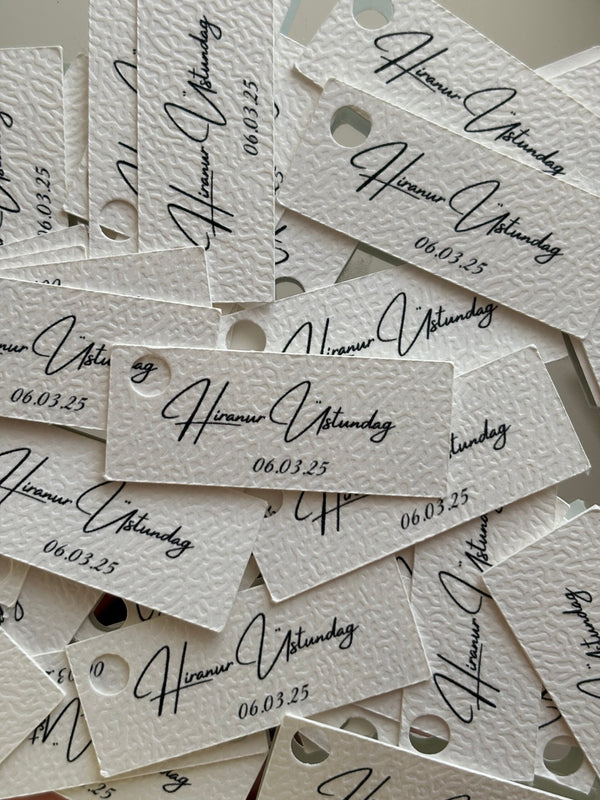 Hiranur Üstundag
06.03.25
Hiranur Üstundag
Hiranur Üstundag
06.03.25
Hiranur Üstundag
06.03.25
Hiranur Üstundag
06.03.25
06.03.25
Hiranur Üstundag
06.03.25
Hiranur Üstundag
06.03.25
Hiranur